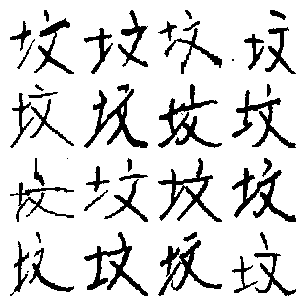 坟坟坟坟
坟坟坟坟
坟坟坟坟
坟坟坟坟